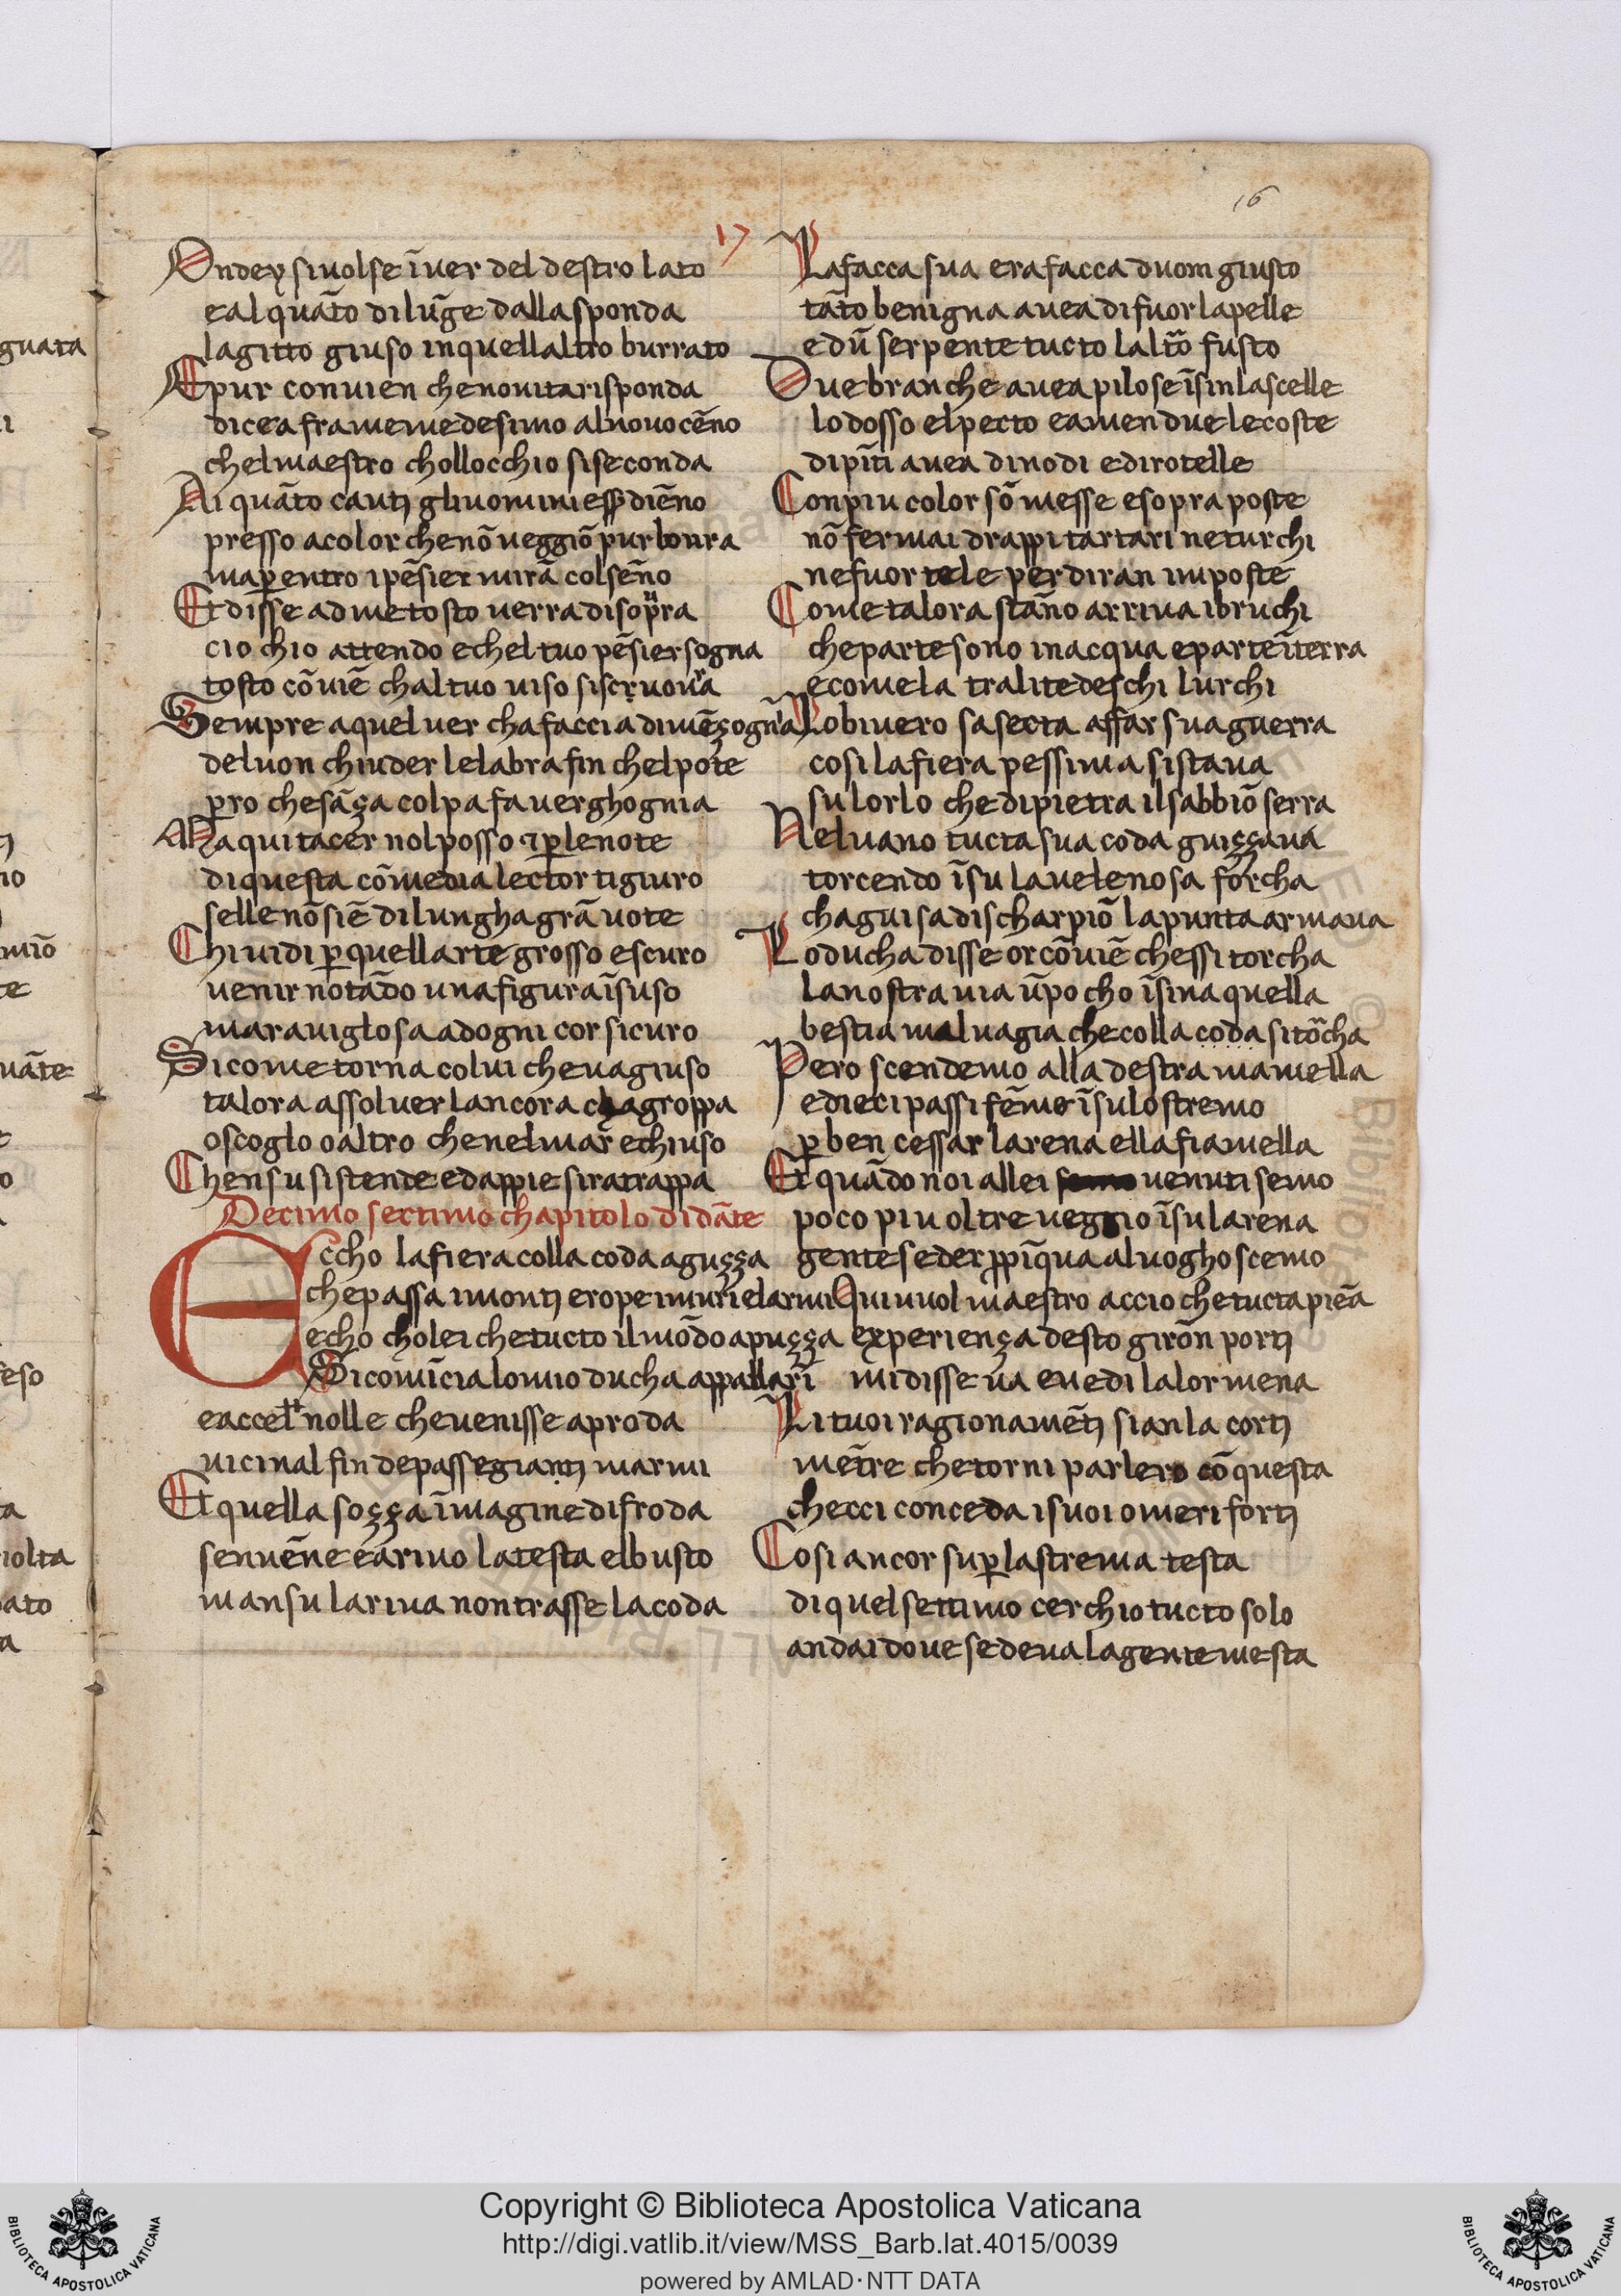 16
17
Ondey siuolse ĩuer del destro lato
ealquãto dilũge dalla sponda
lagitto giuso inquellaltro burrato
Epur conuien chenouita risponda
dicea framemedesimo alnouo cẽno
chelmaestro chollocchio siseconda
Ai quãto cauti gliuomini essẽ diẽno
presso acolor chenõ ueggiõ pur loura
maꝑ entro ipẽsier mirã colsẽno
Et disse admetosto uerra disopra
cio chio attendo echeltuo pẽsier sogna
tosto cõuiẽ chaltuo uiso siscruoua
Sempre aquel uer chafaccia dimẽçogna
deluon chiuder lelabra fin chelpote
ꝑro chesãça colpa fa uerghognia
Ma qui tacer nolposso ꝑ lenote
diquesta cõmedia lector tigiuro
sellenõ siẽ dilungha grã uote
Chi uidi ꝑ quellarte grosso escuro
uenir notãdo una figura ĩsuso
marauiglosa adogni cor sicuro
Si come torna colui cheuagiuso
talora assoluer lancora chagroppa
oscoglo oaltro chenelmar echiuso
Chensu sistende edappie siratrappa
Decimo sectimo chapitolo didãte
Eccho lafiera colla coda aguçça
chepassa imonti erope imuri elarmi
echo cholei chetucto ilmõdo apuçça
Si comĩcia lomio ducha appallari
eaccell nolle cheuenisse aproda
uicinal fin depassegianti marmi
Et quella soçça ĩmagine difroda
senuẽne earriuo latesta elbusto
mansu lariua nontrasse lacoda
La facca sua era facca duom giusto
tãto benigna auea difuor lapelle
edũ serpente tucto laltro fusto
Due branche auea pilose ĩsin lascelle
lodosso elpecto eamendue lecoste
dipĩti auea dinodi edirotelle
Con piu color sõmesse esopra poste
nõ fer mai drappi tartari neturchi
nefuor tele per diran imposte
Come talora stãno arriua ibruchi
cheparte sono inacqua eparte ĩterra
ecomela tralitedeschi lurchi
Lobiuero sasecta affar suaguerra
cosi lafiera pessima sistaua
sulorlo chedipietra ilsabbiõ serra
Neluano tucta sua coda guiççaua
torcendo ĩsu lauelenosa forcha
chaguisa discharpiõ lapunta armaua
Lo ducha disse or cõuiẽ chessi torcha
lanostra uia ũpocho ĩsina quella
bestia maluagia checolla coda sitorcha
Pero scendemo alla destra mamella
edieci passi fẽmo ĩsulostremo
ꝑ ben cessar larena ella fiamella
Et quãdo noi allei uenuti semo
poco piu oltre ueggio ĩsularena
gente seder ꝓpĩqua aluogho scemo
Quiuuol maestro accio chetucta piẽa
experiença desto giron porti
midisse ua euedi lalor mena
Li tuoi ragionamẽti sian la corti
mẽtre chetorni parlero cõ questa
checci conceda isuoi omeri forti
Cosi ancor suꝑ lastrema testa
diquel settimo cerchio tucto solo
andai doue sedeua lagente mesta
Copyright © Biblioteca Apostolica Vaticana
http://digi.vatlib.it/view/MSS_Barb.lat.4015/0039
powered by AMLAD·NTT DATA
BIBLIOTECA APOSTOLICA VATICANA
BIBLIOTECA APOSTOLICA VATICANA